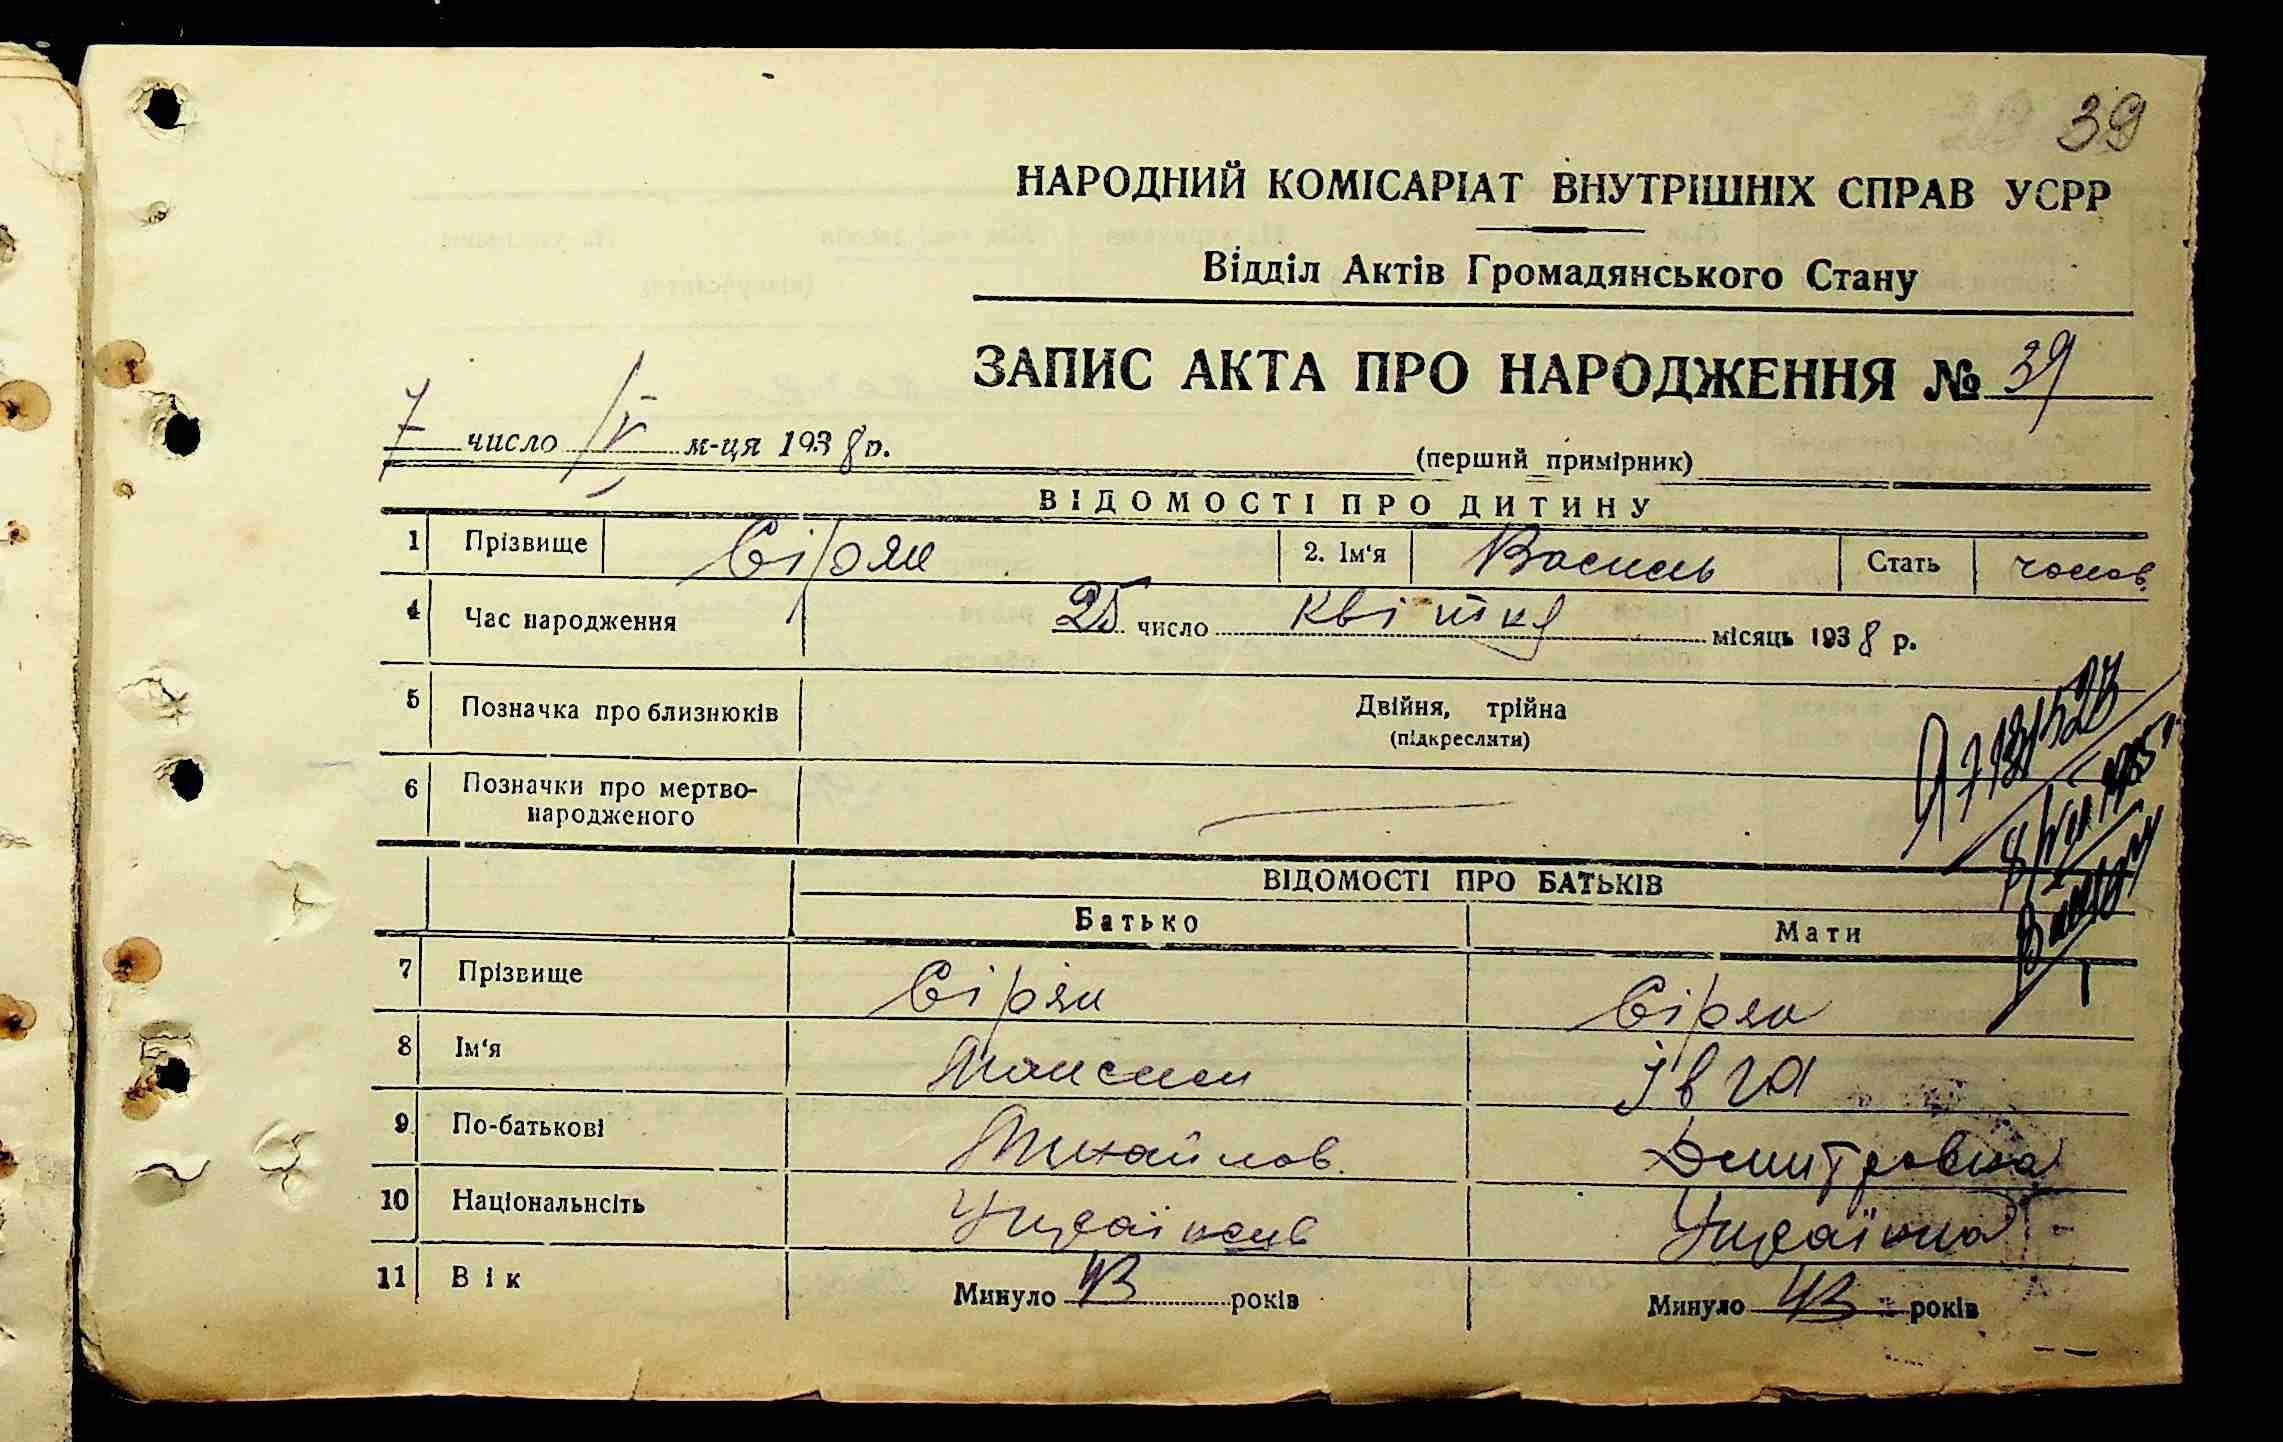 39
НАРОДНИЙ КОМІСАРІАТ ВНУТРІШНІХ СПРАВ УСРР
Відділ Актів Громадянського Стану
ЗАПИС АКТА ПРО НАРОДЖЕННЯ № 39
7 число V м-ця 1938 р.
(перший примірник)
ВІДОМОСТІ ПРО ДИТИНУ
1 Прізвище Сіряк 2. Ім'я Василь Стать чолов.
4 Час народження 25 число Квітня місяць 1938 р.
5 Позначка про близнюків Двійня, трійна
(підкреслити)
6 Позначки про мертво-
народженого
ВІДОМОСТІ ПРО БАТЬКІВ
Батько Мати
7 Прізвище Сіряк Сіряк
8 Ім'я Максим Івга
9 По-батькові Михайлов. Дмитровна
10 Національнсіть Українець Українка
11 Вік Минуло 43 років Минуло 43 років